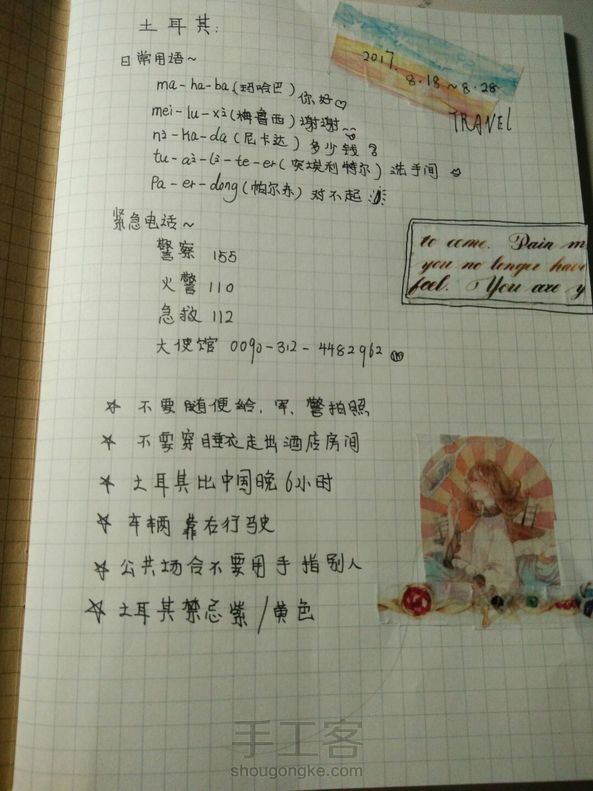 土耳其:
2017.
8.18~8.28
TRAVEL
日常用语~
ma-ha-ba(玛哈巴) 你好
mei-lu-xi(梅鲁西) 谢谢~
ni-ka-da(尼卡达) 多少钱?
tu-ai-li-te-er(突埃利特尔) 洗手间
Pa-er-dong(帕尔东) 对不起
紧急电话~
警察 155
火警 110
急救 112
大使馆 0090-312-4482962
to come. Pain m
you no longer have
feel. You are y
☆ 不要随便给,军、警拍照
☆ 不要穿睡衣走出酒店房间
☆ 土耳其比中国晚6小时
☆ 车辆靠右行驶
☆ 公共场合不要用手指别人
☆ 土耳其禁忌紫/黄色
手工客
shougongke.com